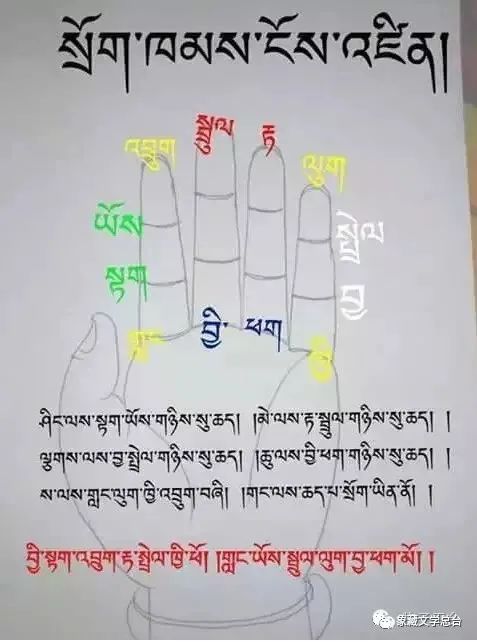 སྲོག་ཁམས་ངོས་འཛིན།
འབྲུག
སྦྲུལ
རྟ
ལུག
ཡོས
སྤྲེལ
སྟག
བྱ
གླང
བྱི་
ཕག
ཁྱི
ཤིང་ལས་སྟག་ཡོས་གཉིས་སུ་ཆད། །མེ་ལས་རྟ་སྦྲུལ་གཉིས་སུ་ཆད། །
ལྕགས་ལས་བྱ་སྤྲེལ་གཉིས་སུ་ཆད། །ཆུ་ལས་བྱི་ཕག་གཉིས་སུ་ཆད། །
ས་ལས་གླང་ལུག་ཁྱི་འབྲུག་བཞི། །གང་ལས་ཆད་པ་སྲོག་ཡིན་ནོ། །
བྱི་སྟག་འབྲུག་རྟ་སྤྲེལ་ཁྱི་ཕོ། །གླང་ཡོས་སྦྲུལ་ལུག་བྱ་ཕག་མོ། །
象藏文学总台